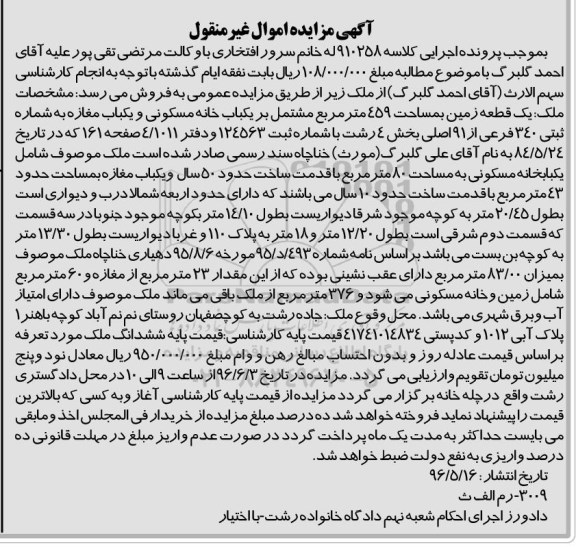 آگهی مزایده اموال غیر منقول
بموجب پرونده اجرایی کلاسه ۹۱۰۲۵۸ له خانم سرور افتخاری با وکالت مرتضی تقی پور علیه آقای
احمد گلبرگ با موضوع مطالبه مبلغ ۱۰۸/۰۰۰/۰۰۰ ریال بابت نفقه ایام گذشته با توجه به انجام کارشناسی
سهم الارث (آقای احمد گلبرگ) از ملک زیر از طریق مزایده عمومی به فروش می رسد: مشخصات
ملک: یک قطعه زمین بمساحت ۴۵۹ متر مربع مشتمل بر یکباب خانه مسکونی و یکباب مغازه به شماره
ثبتی ۳۴۰ فرعی از ۹۱ اصلی بخش ۴ رشت با شماره ثبت ۱۲۴۵۶۳ و دفتر ۴/۱۰۱۱ صفحه ۱۶۱ که در تاریخ
۸۴/۵/۲۴ به نام آقای علی گلبرگ (مورث) خناچاه سند رسمی صادر شده است ملک موصوف شامل
یکبابخانه مسکونی به مساحت ۸۰ متر مربع با قدمت ساخت حدود ۵۰ سال و یکباب مغازه بمساحت حدود
۴۳ متر مربع با قدمت ساخت حدود ۱۰ سال می باشند که دارای حدود اربعه شمالا درب و دیواری است
بطول ۲۰/۴۵ متر به کوچه موجود شرقا دیواریست بطول ۱۴/۱۰ متر بکوچه موجود جنوبا در سه قسمت
که قسمت دوم شرقی است بطول ۱۲/۲۰ متر و ۱۸ متر به پلاک ۱۱۰ و غربا دیواریست بطول ۱۳/۳۰ متر
به کوچه بن بست می باشد بر اساس نامه شماره ۴۹۳/د/۹۵ مورخه ۹۵/۸/۶ دهیاری خناچاه ملک موصوف
بمیزان ۸۳/۰۰ متر مربع دارای عقب نشینی بوده که از این مقدار ۲۳ متر مربع از مغازه و ۶۰ متر مربع
شامل زمین و خانه مسکونی می شود و ۳۷۶ متر مربع از ملک باقی می ماند ملک موصوف دارای امتیاز
آب و برق شهری می باشد. محل وقوع ملک: جاده رشت به کوچصفهان روستای نم نم آباد کوچه باهنر ۱
پلاک آبی ۱۰۱۲ و کد پستی ۴۱۷۴۱۰۱۸۳۴ قیمت پایه کارشناسی: قیمت پایه ششدانگ ملک مورد تعرفه
بر اساس قیمت عادله روز و بدون احتساب مبالغ رهن و وام مبلغ ۹۵۰/۰۰۰/۰۰۰ ریال معادل نود و پنج
میلیون تومان تقویم و ارزیابی می گردد. مزایده در تاریخ ۹۶/۶/۳ از ساعت ۹ الی ۱۰ در محل دادگستری
رشت واقع در چله خانه برگزار می گردد مزایده از قیمت پایه کارشناسی آغاز و به کسی که بالاترین
قیمت را پیشنهاد نماید فروخته خواهد شد ده درصد مبلغ مزایده از خریدار فی المجلس اخذ و مابقی
می بایست حداکثر به مدت یک ماه پرداخت گردد در صورت عدم واریز مبلغ در مهلت قانونی ده
درصد واریزی به نفع دولت ضبط خواهد شد.
تاریخ انتشار: ۹۶/۵/۱۶
۳۰۰۹- رم الف ث
دادورز اجرای احکام شعبه نهم دادگاه خانواده رشت- با اختیار